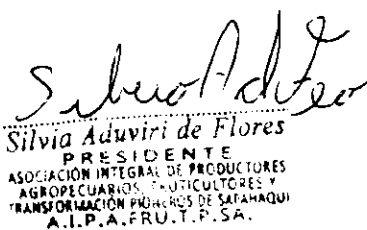 Silvia Aduviri de Flores
PRESIDENTE
ASOCIACIÓN INTEGRAL DE PRODUCTORES
AGROPECUARIOS, FRUTICULTORES Y
TRANSFORMACIÓN PIONEROS DE SAPAHAQUI
A.I.P.A.FRU.T.P.SA.